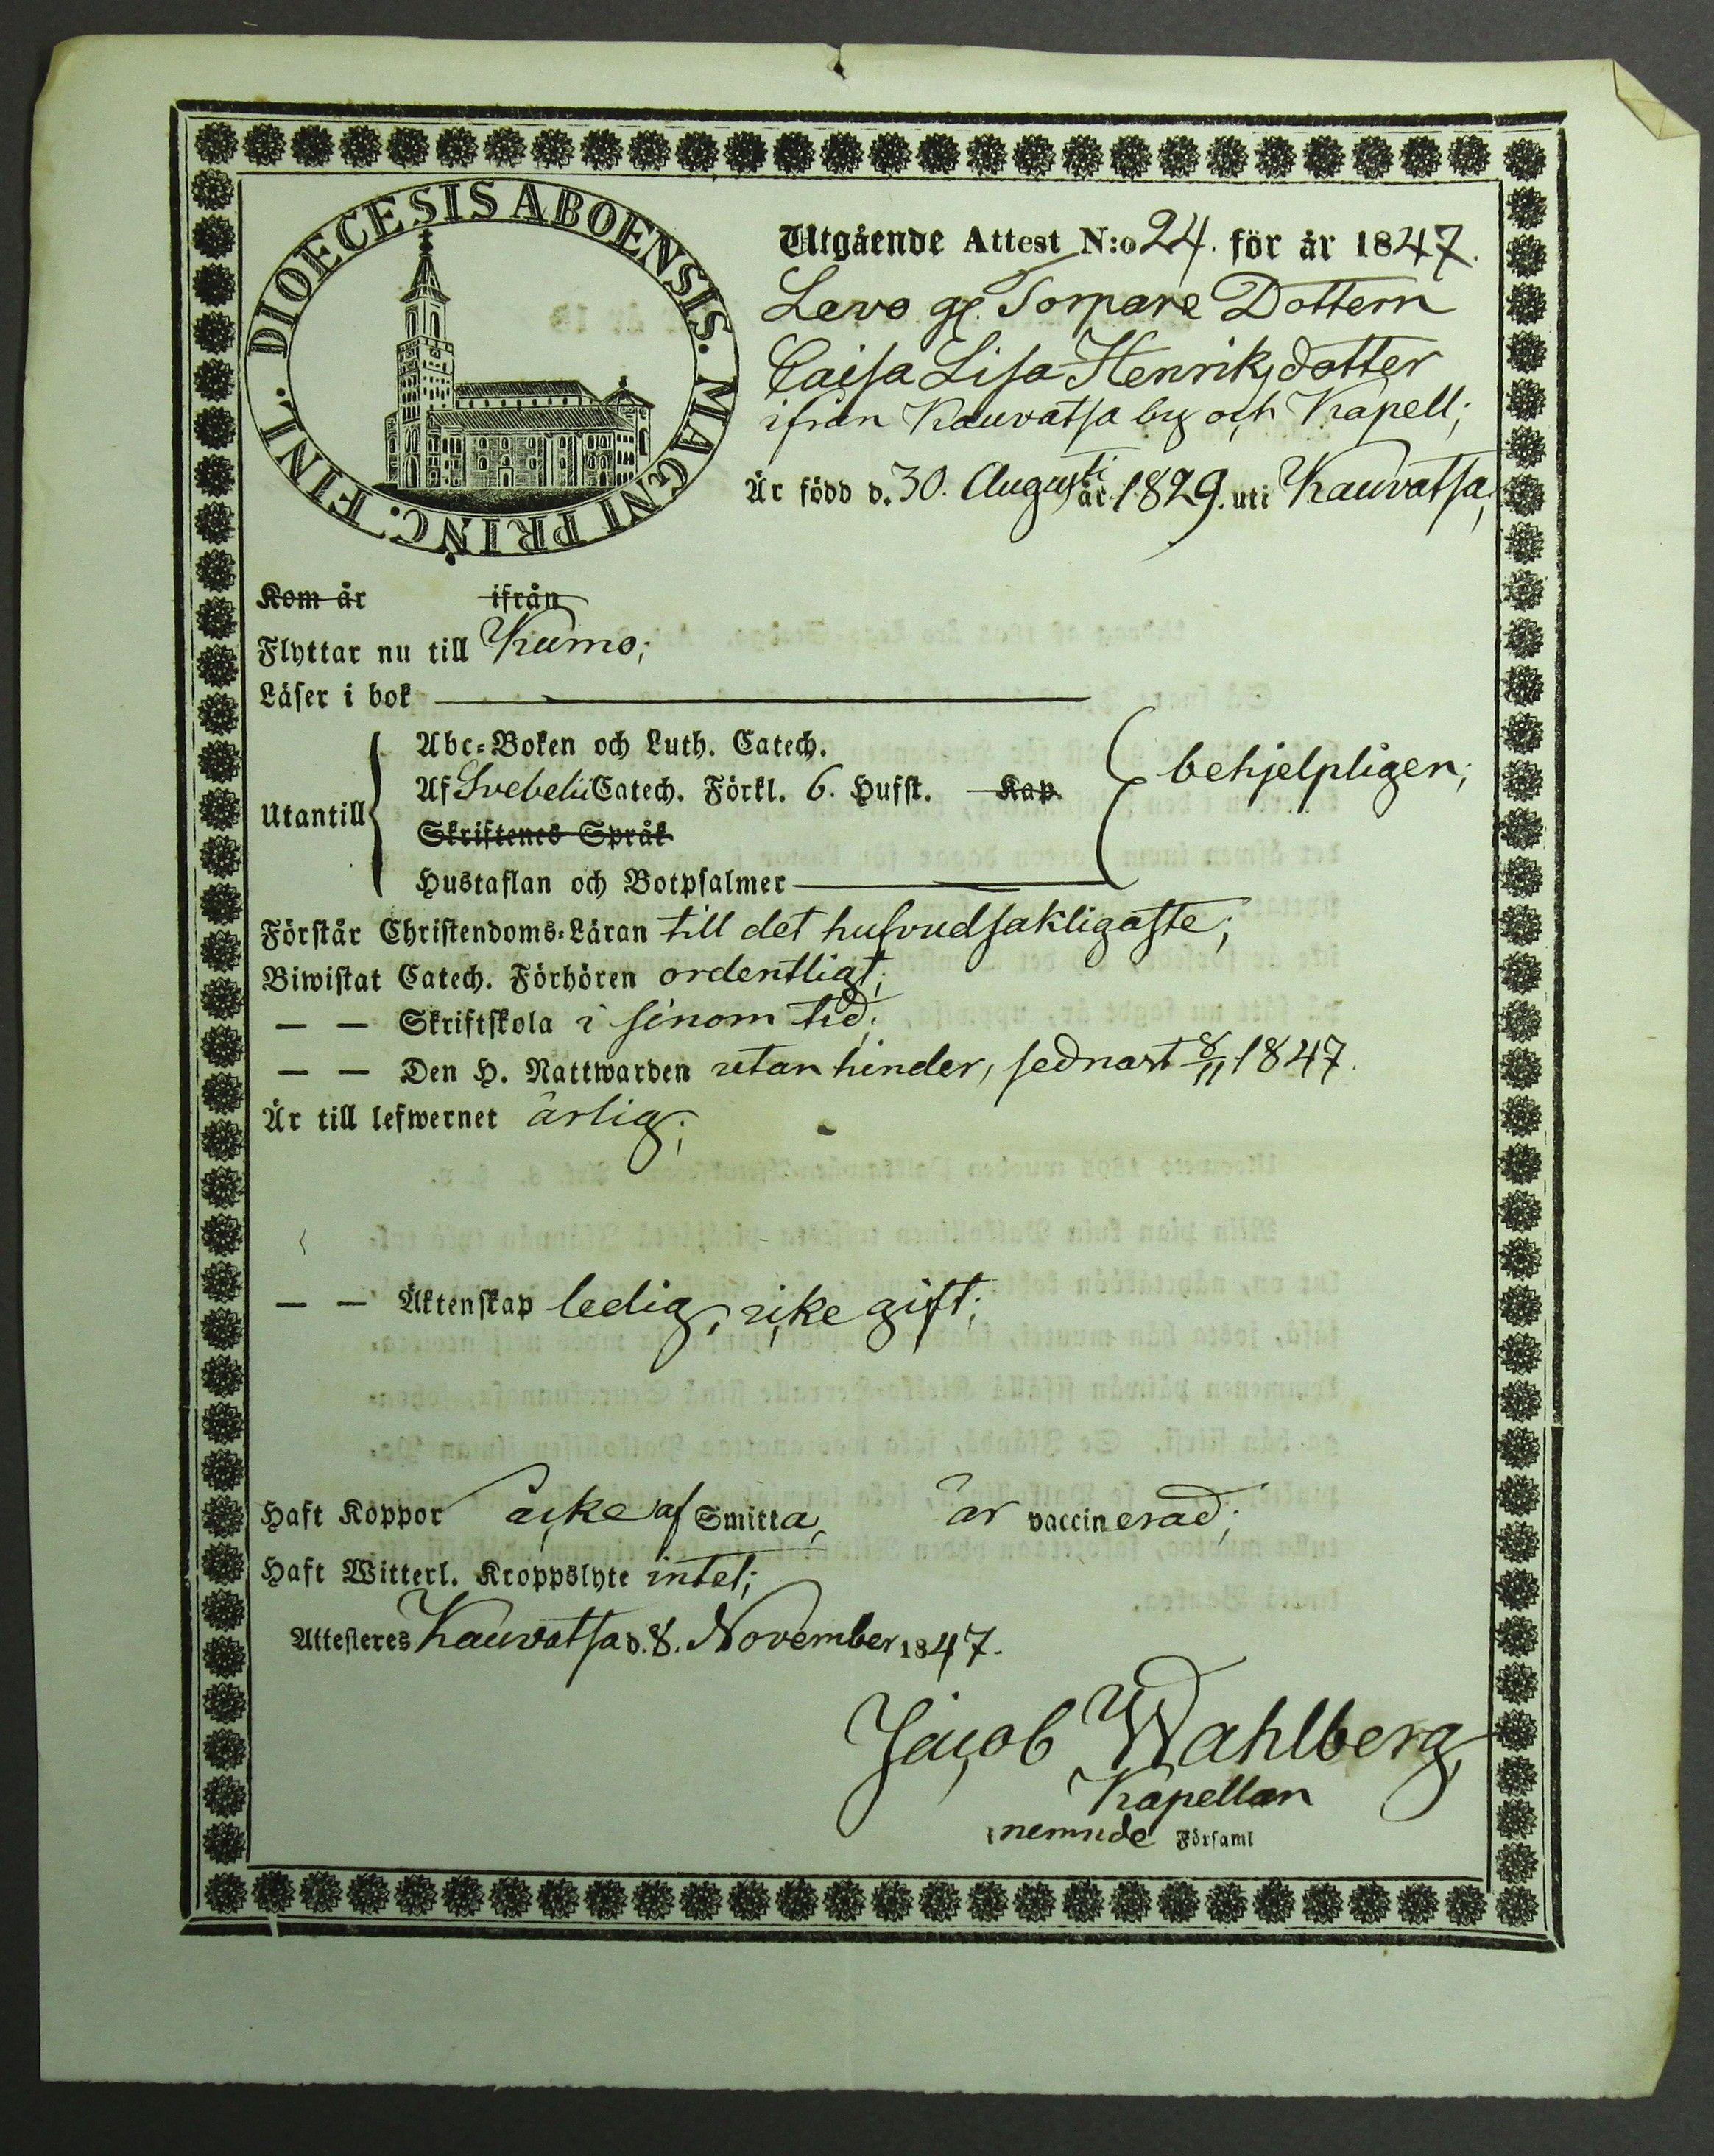 DIOECESIS ABOENSIS. MAGNI PRINC. FINL.
Utgående Attest N:o 24. för år 1847.
Torpare Dottern
Caisa Lisa Henriksdotter
ifrån Kauvatsa by och Kapell;
Är född d. 30. Augusti år 1829. uti Kauvatsa,
Kom år ifrån
Flyttar nu till Kumo;
Läser i bok
Abc-Boken och Luth. Catech.
Af Svebelii Catech. Förkl. 6. Hufst. Kap. behjelpligen;
Utantill
Skriftenes Språk
Hustaflan och Botpsalmer
Förstår Christendoms-Läran till det hufvudsakligaste;
Biwistat Catech. Förhören ordentligt;
— — Skriftskola i sinom tid;
— — Den H. Nattwarden utan hinder, sednast 8/11 1847.
Är till lefwernet ärlig;
— — Äktenskap ledig, icke gift;
Haft Koppor icke af Smitta, är vaccinerad;
Haft Witterl. Kroppslyte intet;
Attesteres Kauvatsa d. 8. November 1847.
Jacob Wahlberg
Kapellan
nemnde Församl